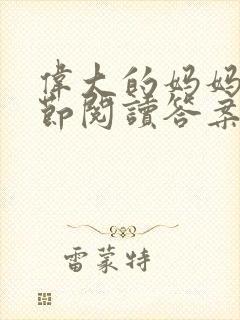 偉大的媽媽
節閱讀答案
雷蒙特